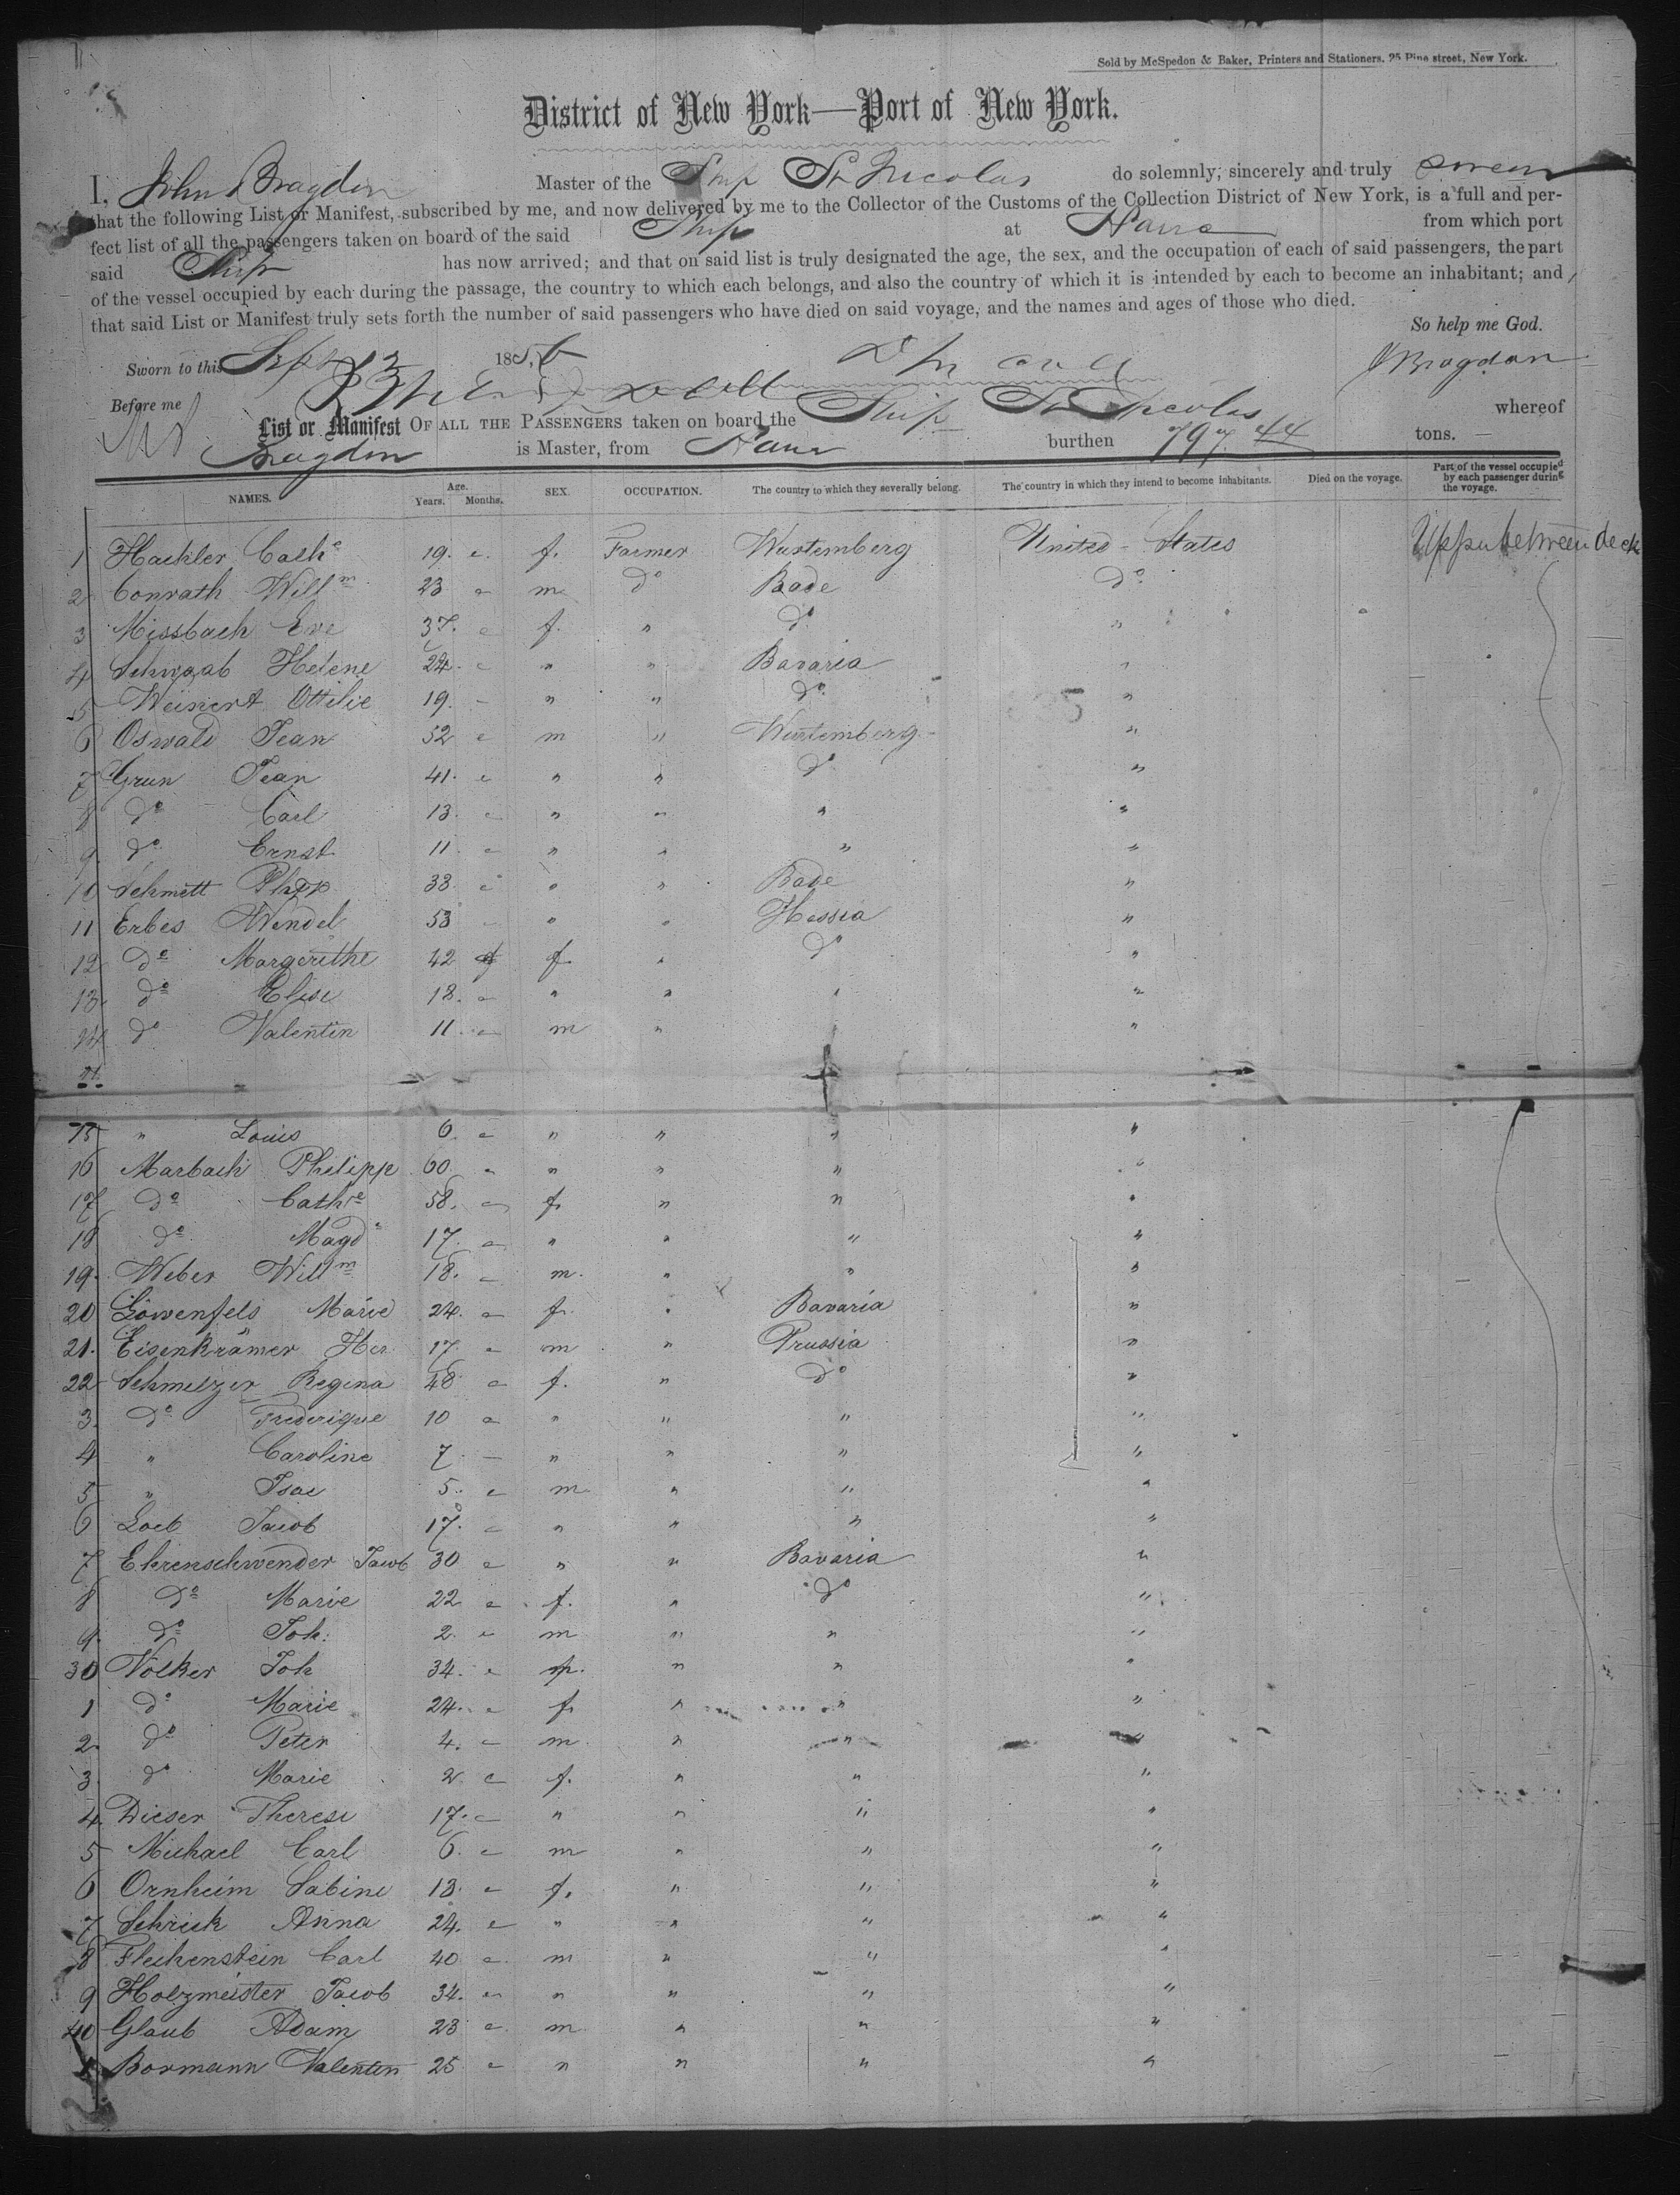 Sold by McSpedon & Baker, Printers and Stationers, 25 Pine street, New York.
District of New York—Port of New York.
I, John Bragdon Master of the Ship St Nicolas do solemnly, sincerely and truly swear
that the following List or Manifest, subscribed by me, and now delivered by me to the Collector of the Customs of the Collection District of New York, is a full and per-
fect list of all the passengers taken on board of the said Ship at Havre from which port
said Ship has now arrived; and that on said list is truly designated the age, the sex, and the occupation of each of said passengers, the part
of the vessel occupied by each during the passage, the country to which each belongs, and also the country of which it is intended by each to become an inhabitant; and
that said List or Manifest truly sets forth the number of said passengers who have died on said voyage, and the names and ages of those who died.
So help me God.
Sworn to this Sept 13 1856 J Bragdon
Before me
List or Manifest OF ALL THE PASSENGERS taken on board the Ship St Nicolas whereof
Bragdon is Master, from Havre burthen 797 44 tons.
NAMES. Age. Years. Months. SEX. OCCUPATION. The country to which they severally belong. The country in which they intend to become inhabitants. Died on the voyage. Part of the vessel occupied by each passenger during the voyage.
1 Hachler Cathe 19. f. Farmer Wurtemberg United States Upper between deck
2 Conrath Willm 23 m do Bade do
3 Missbach Eve 37. f. " do "
4 Schwaab Helene 24. " " Bavaria "
5 Weinert Ottilie 19. - " " do "
6 Oswald Jean 52 m " Wurtemberg "
7 Grun Jean 41. " " do "
8 do Carl 13. " " " "
9 do Ernst 11. " " " "
10 Schmitt 33 " " Bade "
11 Erbes Wendel 53 " " Hessia "
12 do Margerithe 42 f. " do "
13. do Elise 18. " " " "
14 do Valentin 11. m " "
15 " Louis 6. " " " "
16 Marbach Philipp 60. " " " "
17 do Cathe 58. f. " " "
18 do Magd 17. " " " "
19. Weber Willm 18. m. " " "
20 Lowenfels Marie 24. f. " Bavaria "
21. Eisenkrämer Her 17. m " Prussia "
22 Schmelzer Regina 48 f. " do "
3. do Frederique 10 " " " "
4 " Caroline 7. " " " "
5 " Isac 5. m " " "
6 Loeb Jacob 17. " " " "
7 Ehrenschwender Jacob 30 " " Bavaria "
8 do Marie 22 f. " do "
9. do Joh. 2. m " " "
30 Völker Joh 34. m. " " "
1 do Marie 24. f. " " "
2. do Peter 4. m " " "
3. do Marie 2. f. " " "
4. Dieser Therese 17. " " " "
5 Michael Carl 6. m " " "
6 Ornheim Sabine 13. f. " " "
7 Schrick Anna 24. " " " "
8 Fleckenstein Carl 40. m " " "
9 Holzmeister Jacob 34. " " " "
40 Glaub Adam 23 m " " "
1 Bormann Valentin 25 " " " "